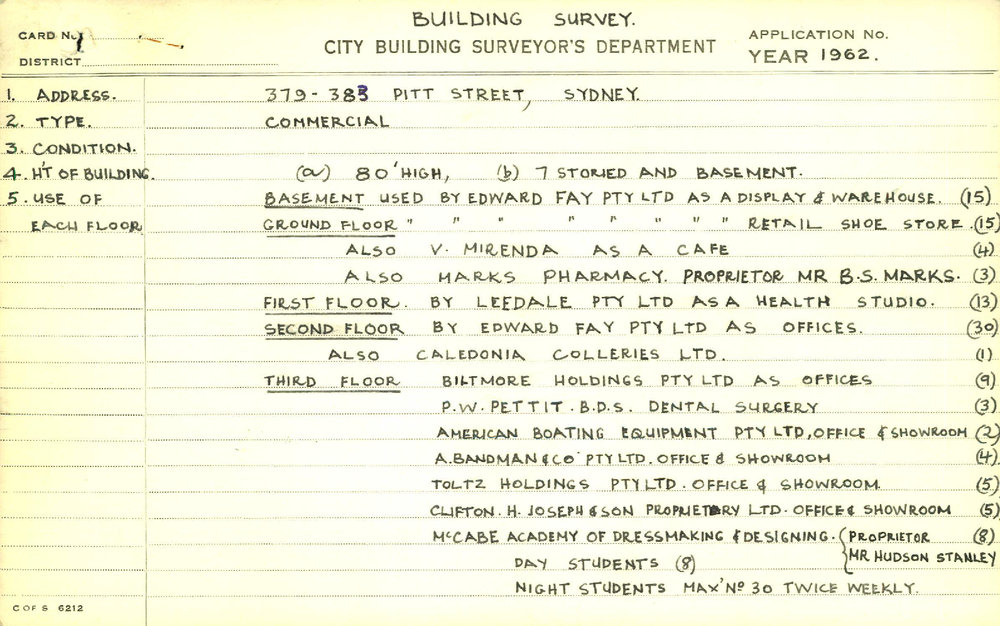 BUILDING SURVEY.
CARD No. 1
CITY BUILDING SURVEYOR'S DEPARTMENT
APPLICATION No.
DISTRICT
YEAR 1962.
1. ADDRESS. 379-383 PITT STREET, SYDNEY.
2. TYPE. COMMERCIAL
3. CONDITION.
4. H'T OF BUILDING. (a) 80' HIGH, (b) 7 STORIED AND BASEMENT.
5. USE OF BASEMENT USED BY EDWARD FAY PTY LTD AS A DISPLAY & WAREHOUSE. (15)
EACH FLOOR GROUND FLOOR " " " " " " " RETAIL SHOE STORE. (15)
ALSO V. MIRENDA AS A CAFE (4)
ALSO MARKS PHARMACY. PROPRIETOR MR B.S. MARKS. (3)
FIRST FLOOR. BY LEEDALE PTY LTD AS A HEALTH STUDIO. (13)
SECOND FLOOR BY EDWARD FAY PTY LTD AS OFFICES. (30)
ALSO CALEDONIA COLLERIES LTD. (1)
THIRD FLOOR BILTMORE HOLDINGS PTY LTD AS OFFICES (9)
P.W. PETTIT. B.D.S. DENTAL SURGERY (3)
AMERICAN BOATING EQUIPMENT PTY LTD, OFFICE & SHOWROOM (2)
A. BANDMAN & CO PTY LTD. OFFICE & SHOWROOM (4)
TOLTZ HOLDINGS PTY LTD. OFFICE & SHOWROOM (5)
CLIFTON. H. JOSEPH & SON PROPRIETARY LTD. OFFICE & SHOWROOM (5)
McCABE ACADEMY OF DRESSMAKING & DESIGNING. { PROPRIETOR (8)
DAY STUDENTS (8) MR HUDSON STANLEY
NIGHT STUDENTS MAX' No 30 TWICE WEEKLY.
C OF S 6212